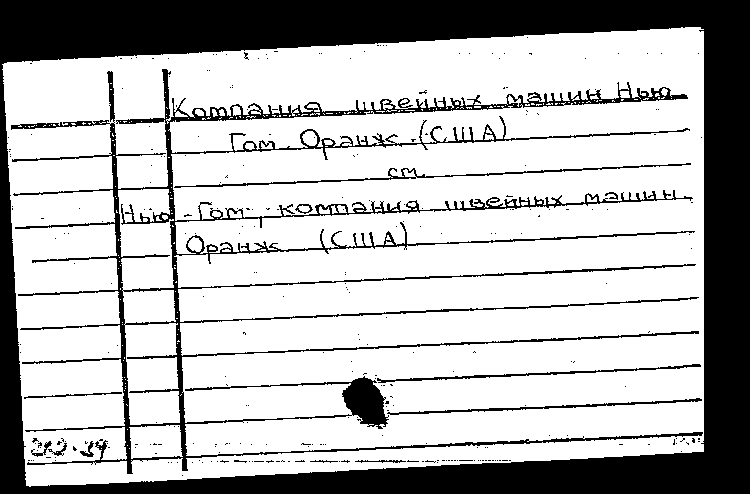 Компания швейных машин Нью
Гом. Оранж. (США)
см.
Нью-Гом, компания швейных машин.
Оранж (США)